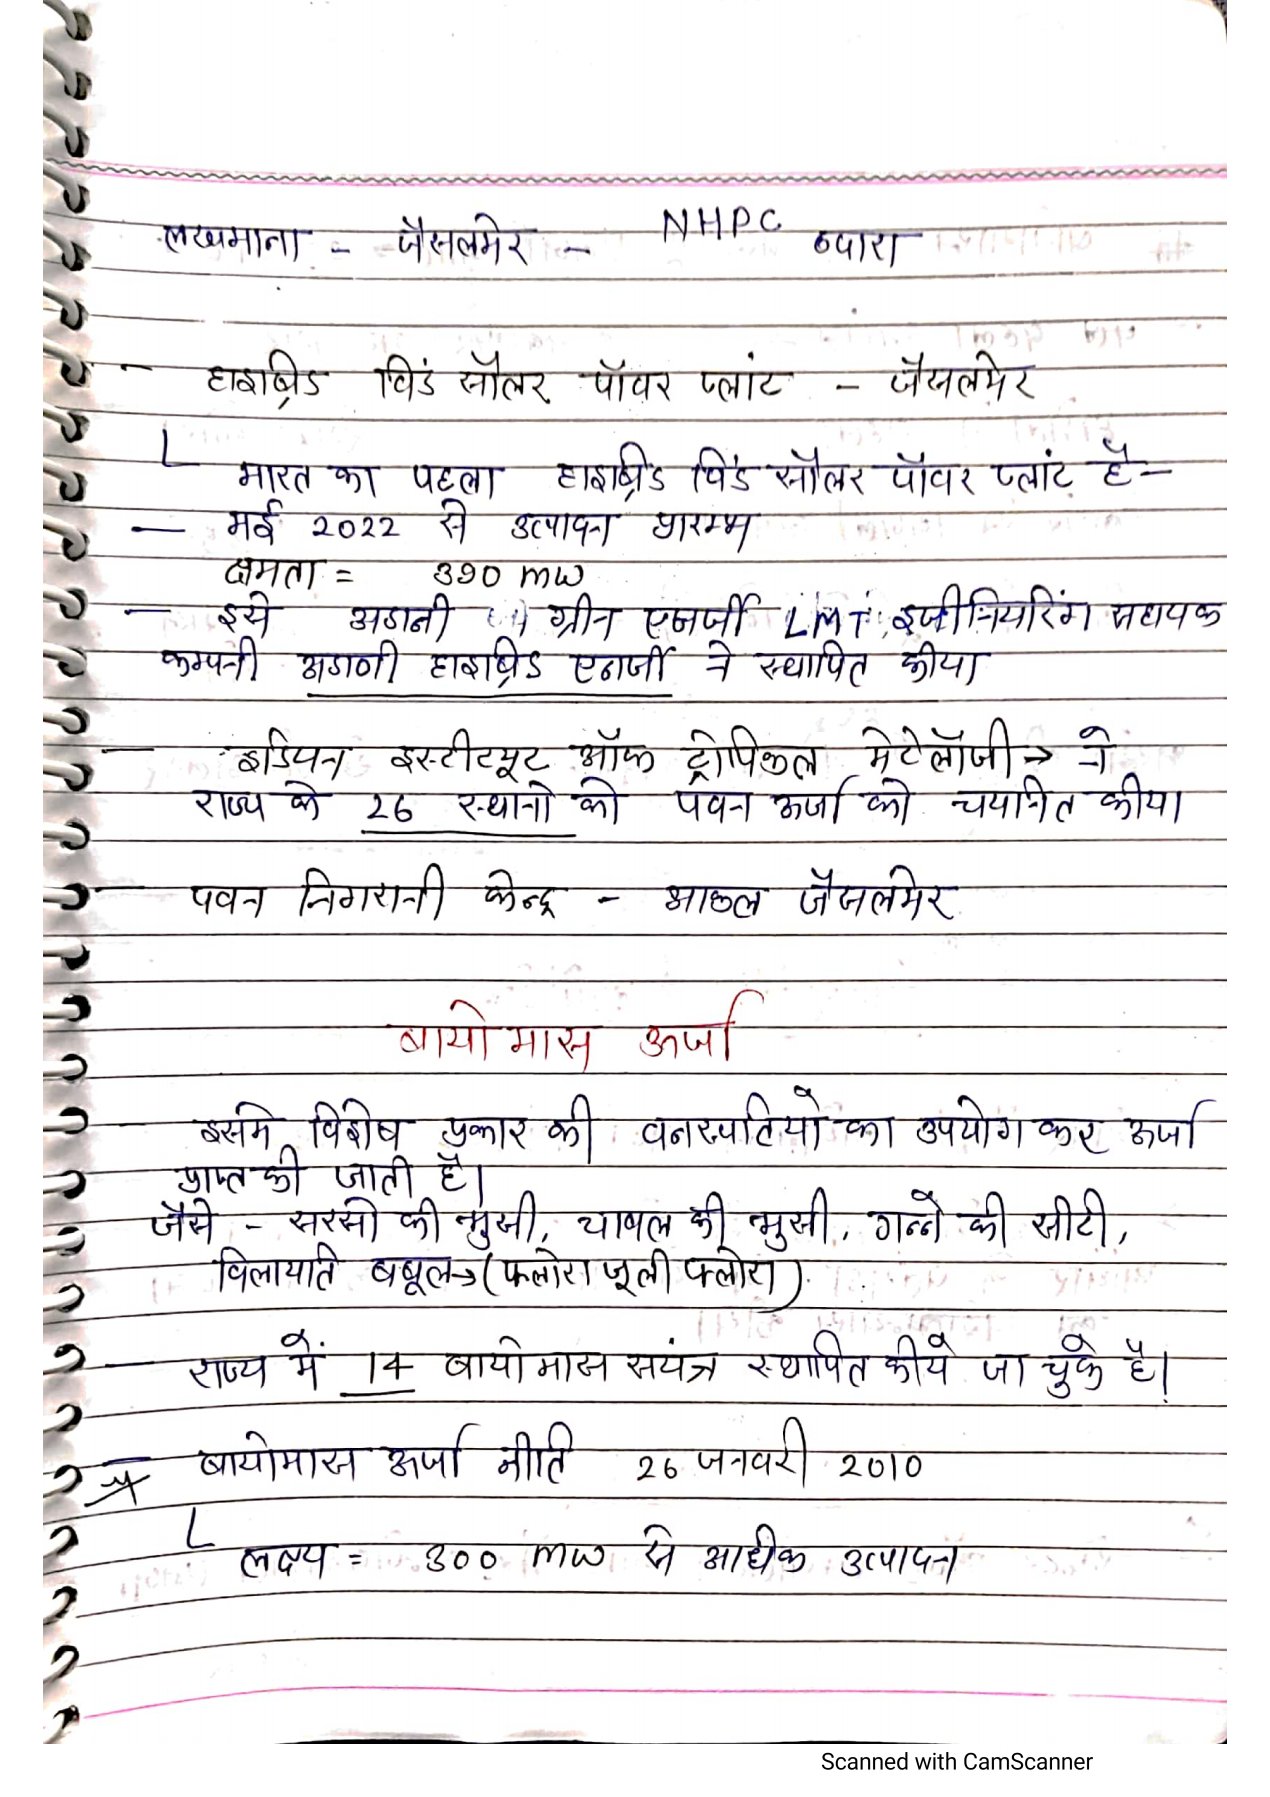 लखमाना - जैसलमेर - NHPC व्दारा
- हाइब्रिड विडं सौलर पॉवर प्लांट - जैसलमेर
भारत का पहला हाइब्रिड विडं सौलर पॉवर प्लांट है-
- मई 2022 से उत्पादन प्रारम्भ
क्षमता = 390 mw
- इसे अडानी ग्रीन एनर्जी LMT इंजीनियरिंग सहायक
कम्पनी अडाणी हाइब्रिड एनर्जी ने स्थापित कीया
- इडियन इस्टीट्यूट ऑफ ट्रोपिकल मेटेलॉजी → ने
राज्य के 26 स्थानो को पवन ऊर्जा को चयनित कीया
- पवन निगरानी केन्द्र - आकल जैसलमेर
बायो मास ऊर्जा
इसमे विशेष प्रकार की वनस्पतियो का उपयोग कर ऊर्जा
प्राप्त की जाती है।
जैसे - सरसो की भुसी, चावल की भुसी, गन्ने की सीटी,
विलायति बबूल→(फ्लोरा जूली फ्लोरा)
- राज्य में 14 बायो मास सयंत्र स्थापित कीये जा चुके है।
- बायोमास ऊर्जा नीति 26 जनवरी 2010
लक्ष्य = 300 mw से अधीक उत्पादन
Scanned with CamScanner